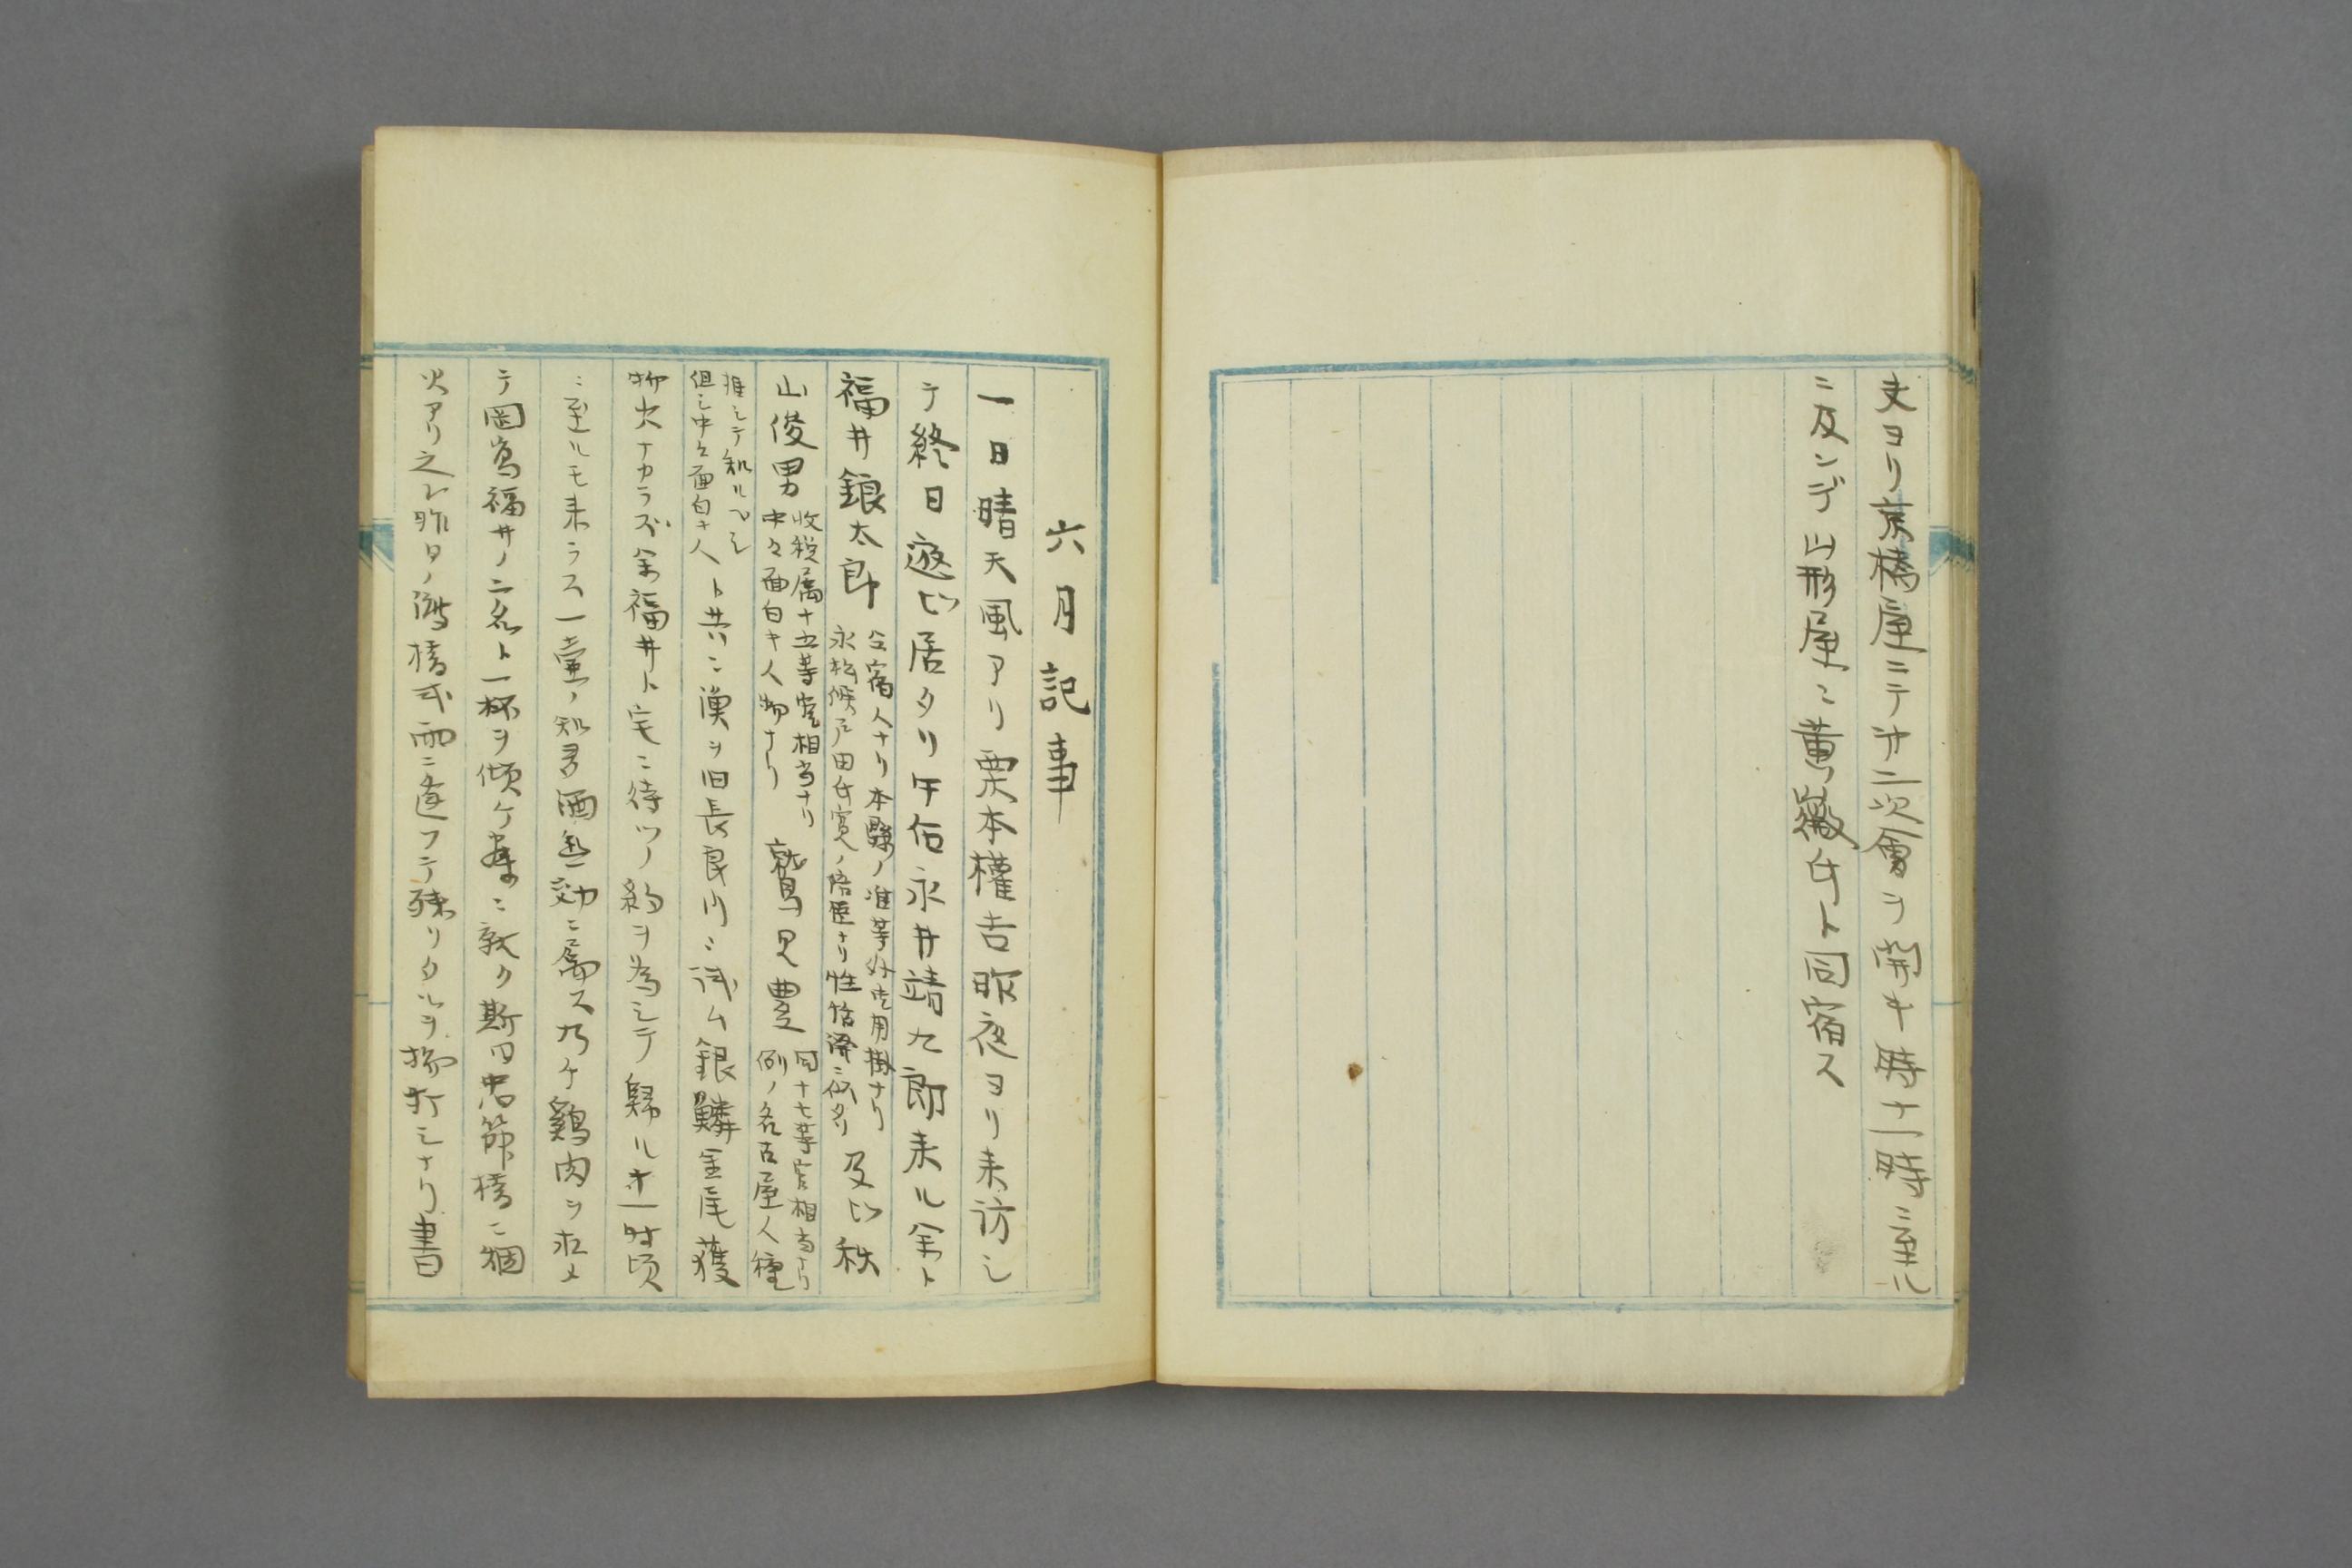 丈ヨリ京橋屋ニテ廾二次會ヲ開キ時十一時ニ至ル
ニ及ンデ山形屋ニ薫嶶氏ト同宿ス
六月記事
一日晴天風アリ栗本權吉昨夜ヨリ来訪シ
テ終日遊ビ居タリ午后永井靖九郎来ル余ト
福井銀太郎
仝宿人ナリ本縣ノ准等外吏用掛ナリ
永松候戸田氏寛ノ陪臣ナリ性恬澹ニ似タリ
及ビ秋
山俊男
收税属十五等官相当ナリ
中々面白キ人物ナリ
鷲見豊
同十七等官相当ナリ
例ノ名古屋人種
推シテ知ルベシ
但シ中々面白キ人
ト共ニ漁ヲ旧長良川ニ試ム銀鱗金尾獲
物尠ナカラズ余福井ト宅ニ待ツノ約ヲ為シテ歸ル十一時頃
ニ至ルモ来ラス一壷ノ知多酒無効ニ属ス乃ケ鷄肉ヲ求メ
テ岡島福井ノ二名ト一杯ヲ傾ケ寡ニ就ク斯日忠節橋ニ
火アリ之レ昨日ノ
橋
雨ニ逢フテ残リタルヲ
打シナリ書